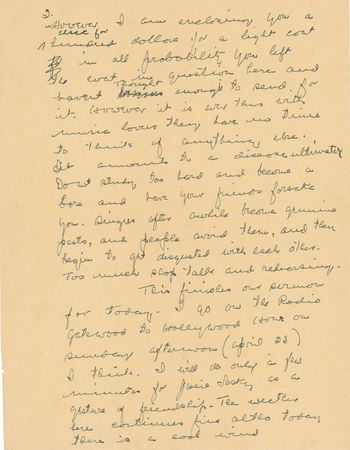 2.
However I am enclosing you a
check for
hundred dollars for a light coat
in all probability you left
the coat in question here and
havent thought enough to send for
it. However it is ever thus with
music lovers they have no time
to think of anything else.
It amounts to a disease ultimately
Do not study too hard and become a
bore and have your friends forsake
you. Singers after awhile become genuine
pests, and people avoid them, and then
begin to get disgusted with each other.
Too much shop talk and rehearsing.
This finishes our sermon
for today. I go on the Radio
Gateway to Hollywood Hour on
Sunday afternoon (April 23)
I think. I will do only a few
minutes for Jesse Lasky as a
gesture of friendship. The weather
here continues fine altho today
there is a cool wind